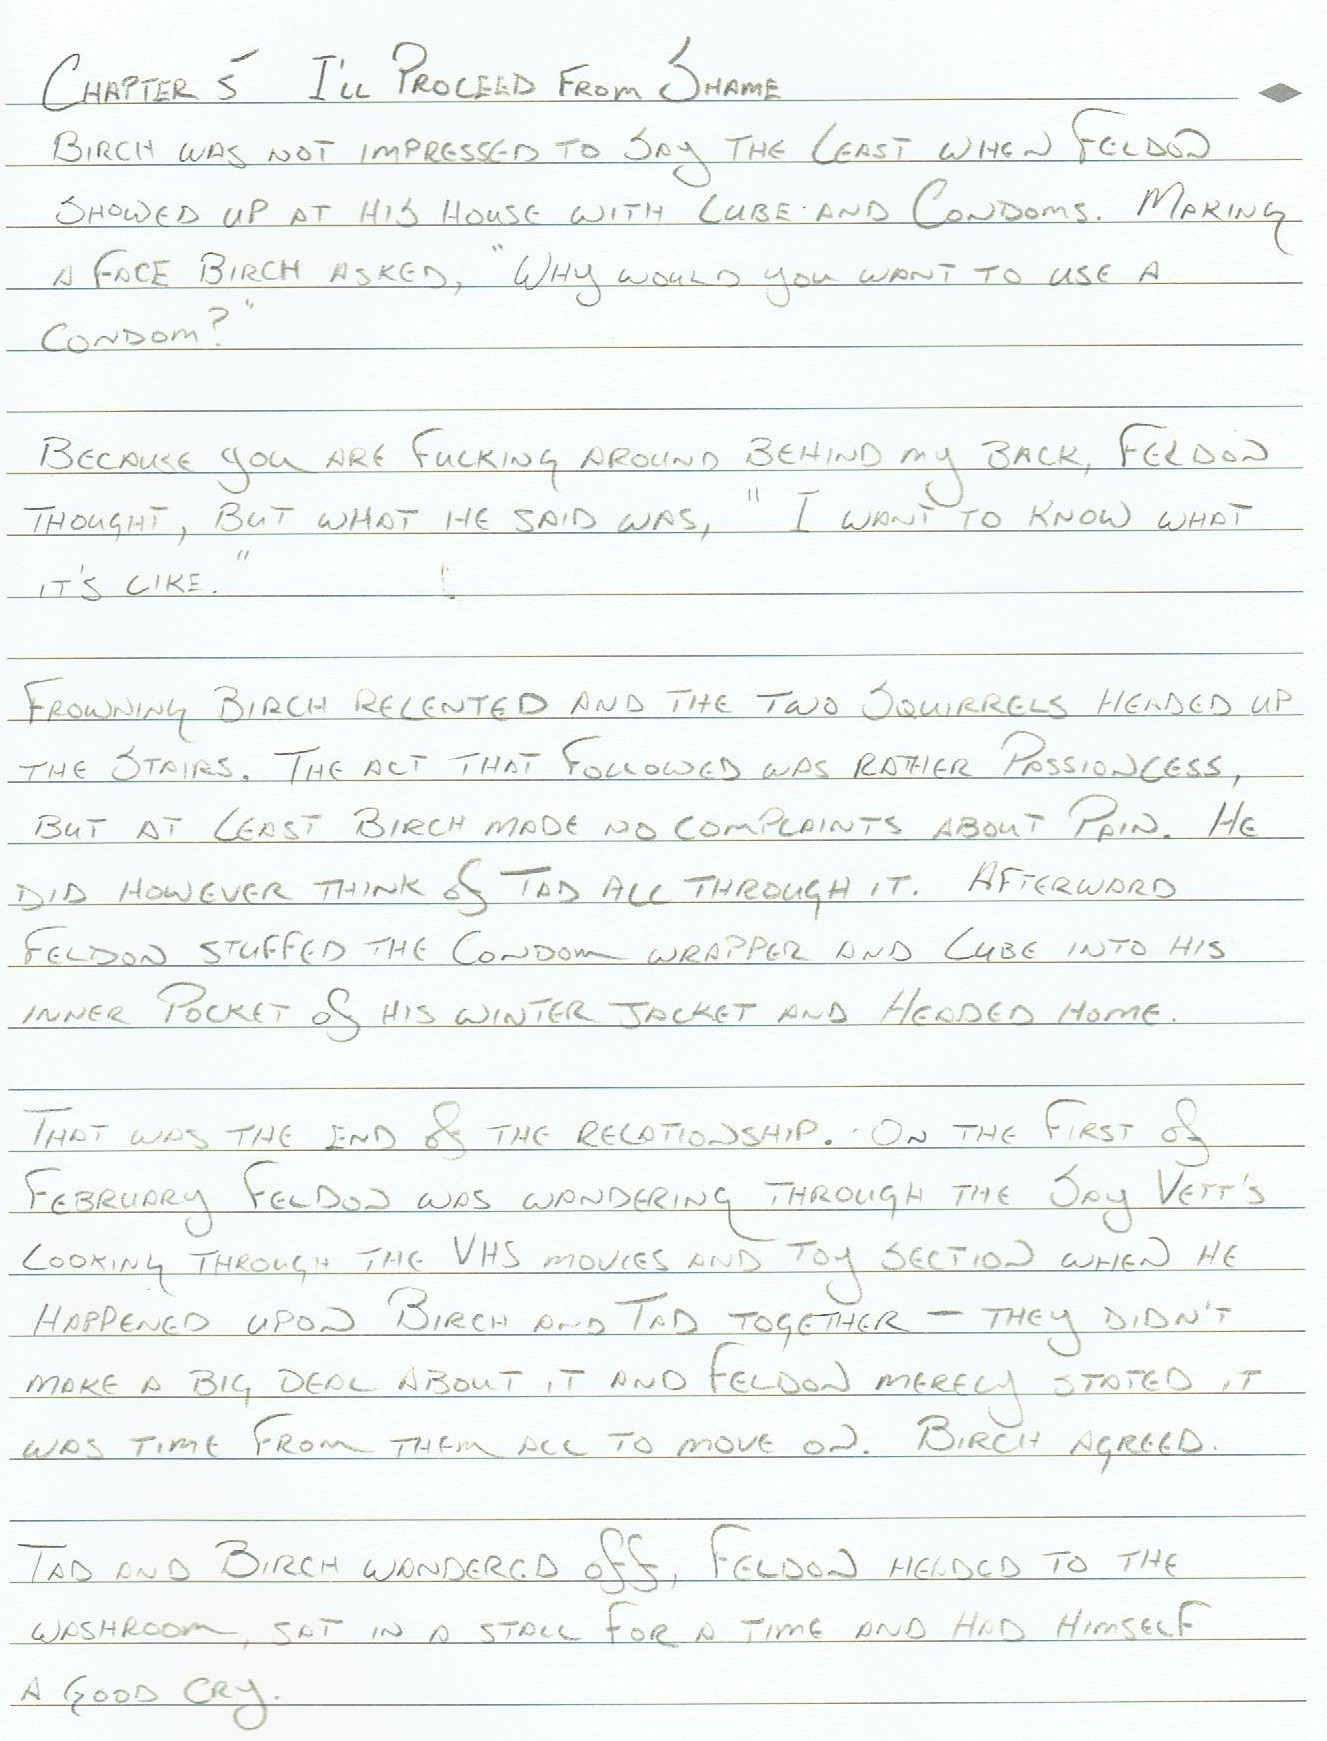 Chapter 5 I'll Proceed From Shame
Birch was not impressed to say the least when Feldon
showed up at his house with lube and condoms. Making
a face Birch asked, "Why would you want to use a
condom?"
Because you are fucking around behind my back, Feldon
thought, but what he said was, "I want to know what
it's like."
Frowning Birch relented and the two squirrels headed up
the stairs. The act that followed was rather passionless,
but at least Birch made no complaints about pain. He
did however think of Tad all through it. Afterward
Feldon stuffed the condom wrapper and lube into his
inner pocket of his winter jacket and headed home.
That was the end of the relationship. On the first of
February Feldon was wandering through the Say Vett's
looking through the VHS movies and toy section when he
happened upon Birch and Tad together – they didn't
make a big deal about it and Feldon merely stated it
was time from them all to move on. Birch agreed.
Tad and Birch wandered off, Feldon headed to the
washroom, sat in a stall for a time and had himself
a good cry.